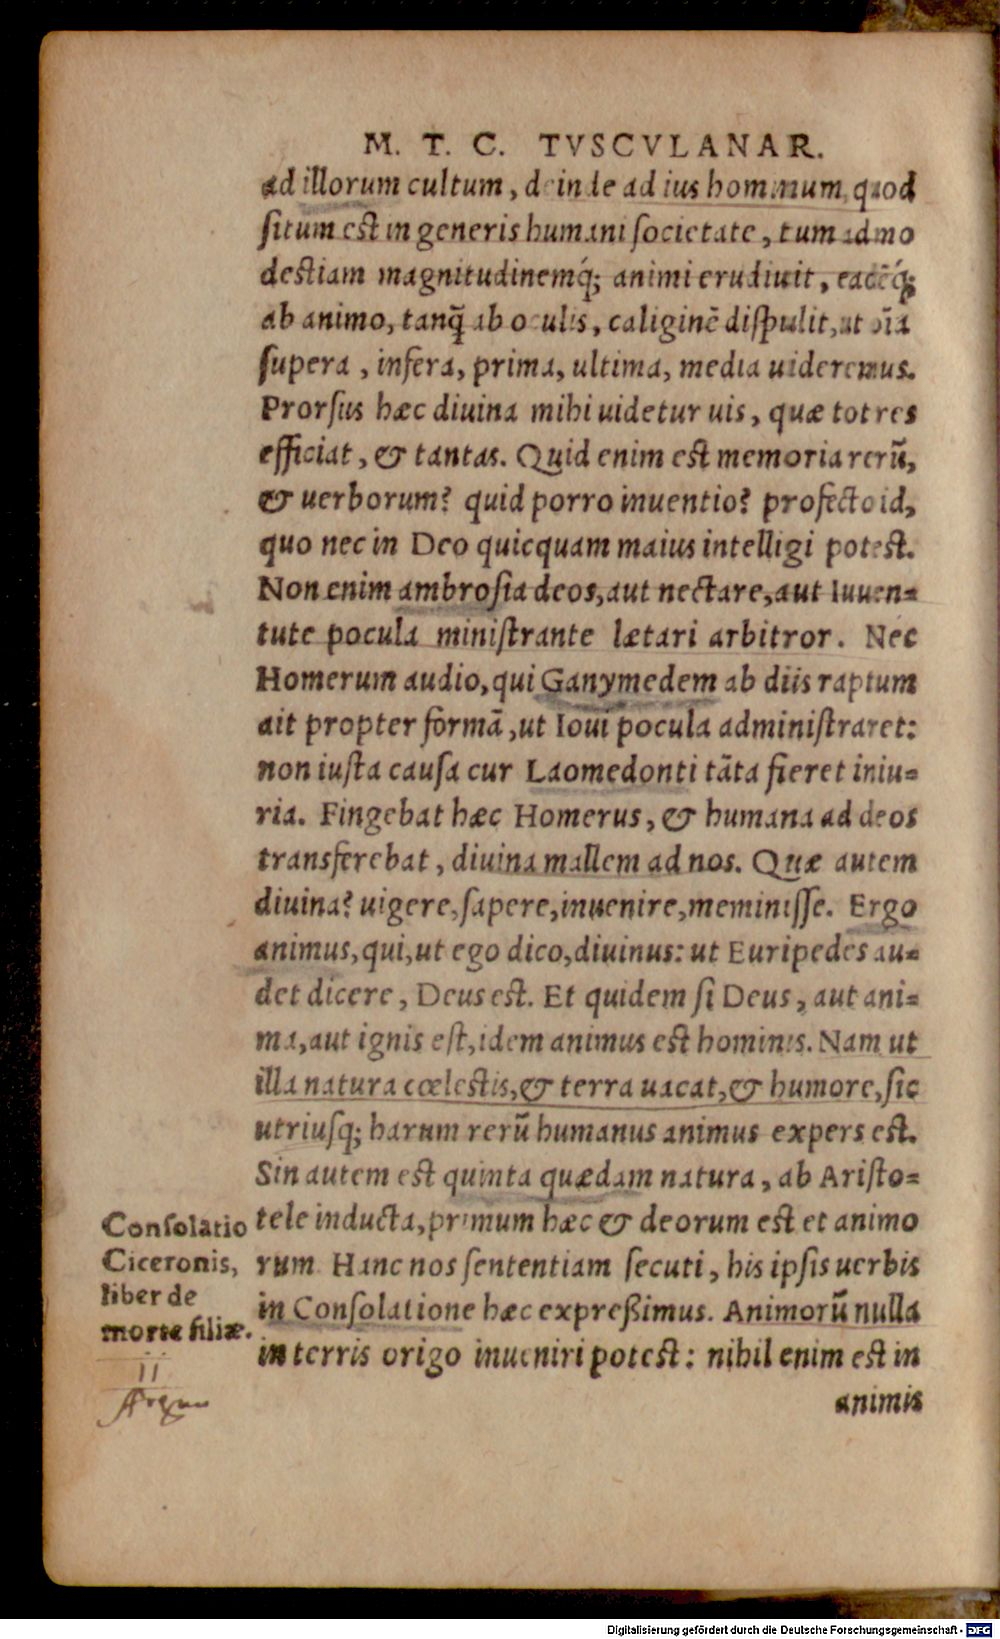 M. T. C. TVSCVLANAR.
ad illorum cultum, deinde ad ius hominum, quod
ſitum est in generis humani ſocietate, tum ad mo
destiam magnitudinemq́; animi erudiuit, eadēq́;
ab animo, tanq̃ ab oculis, caliginē diſpulit, ut oīa
ſupera, infera, prima, ultima, media uideremus.
Prorſus hæc diuina mihi uidetur uis, quæ tot res
efficiat, & tantas. Quid enim est memoria rerū,
& uerborum? quid porro inuentio? profecto id,
quo nec in Deo quicquam maius intelligi potest.
Non enim ambroſia deos, aut nectare, aut Iuuen=
tute pocula miniſtrante lætari arbitror. Nec
Homerum audio, qui Ganymedem ab diis raptum
ait propter formā, ut Ioui pocula adminiſtraret:
non iuſta cauſa cur Laomedonti tāta fieret iniu=
ria. Fingebat hæc Homerus, & humana ad deos
transferebat, diuina mallem ad nos. Quæ autem
diuina? uigere, ſapere, inuenire, meminiſſe. Ergo
animus, qui, ut ego dico, diuinus: ut Euripedes au=
det dicere, Deus est. Et quidem ſi Deus, aut ani=
ma, aut ignis eſt, idem animus est hominis. Nam ut
illa natura cœlestis, & terra uacat, & humore, ſic
utriuſq; harum rerū humanus animus expers est.
Sin autem est quinta quædam natura, ab Ariſto=
tele inducta, primum hæc & deorum est et animo
rum. Hanc nos ſententiam ſecuti, his ipſis uerbis
in Conſolatione hæc expreßimus. Animorū nulla
in terris origo inueniri potest: nihil enim est in
animis
Conſolatio
Ciceronis,
liber de
morte filiæ.
11
Digitalisierung gefördert durch die Deutsche Forschungsgemeinschaft - DFG